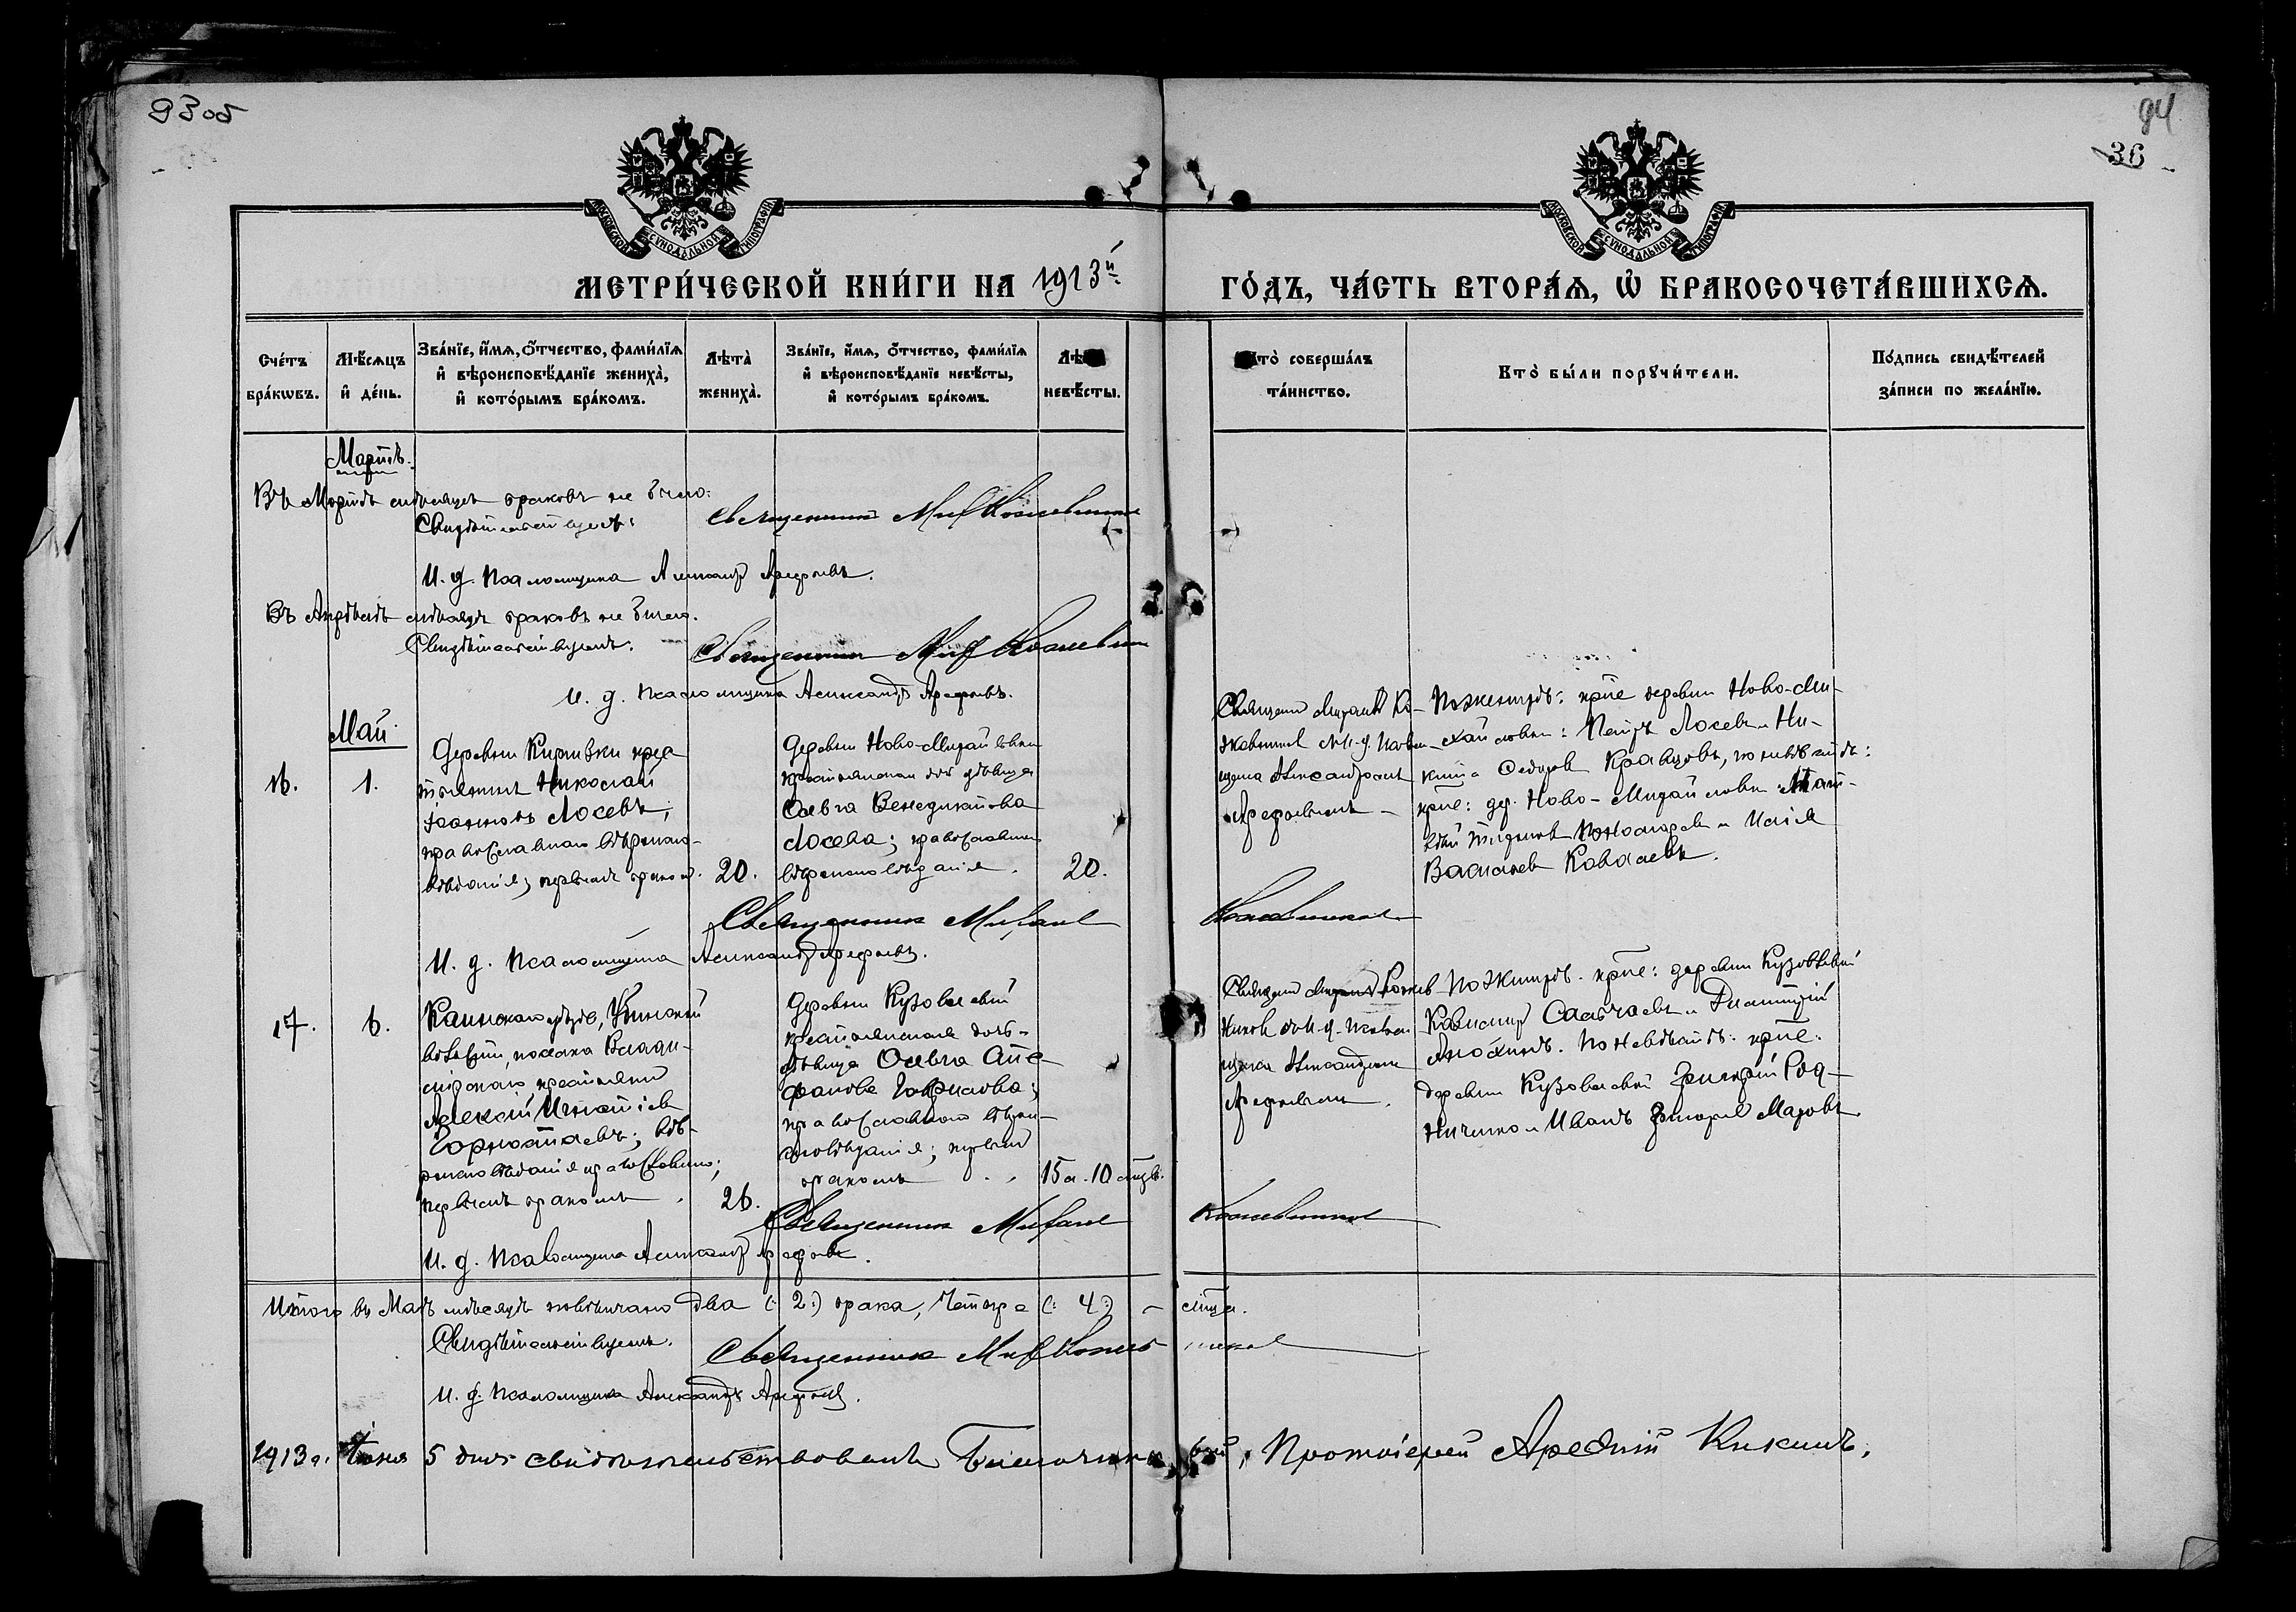 93 об
94
36
МОСКОВСКОЙ СѴНОДАЛЬНОЙ ТИПОГРАФІИ
МОСКОВСКОЙ СѴНОДАЛЬНОЙ ТИПОГРАФІИ
МЕТРИ́ЧЕСКОЙ КНИ́ГИ НА 1913й
ГО́ДЪ, ЧА́СТЬ ВТОРА́Ѧ, Ѽ БРАКОСОЧЕТА́ВШИХСѦ.
Сче́тъ бра́кѡвъ.
Мѣ́сѧцъ и҆ де́нь.
Зва́нїе, и҆́мѧ, ѻ҆́тчество, фами́лїѧ и҆ вѣроисповѣ́данїе жениха̀, и҆ кото́рымъ бра́комъ.
Лѣта̀ жениха̀.
Зва́нїе, и҆́мѧ, ѻ҆́тчество, фами́лїѧ и҆ вѣроисповѣ́данїе невѣ́сты, и҆ кото́рымъ бра́комъ.
невѣ́сты.
соверша́лъ та́инство.
Кто̀ бы́ли порꙋчи́тели.
По́дпись свидѣ́телей за́писи по жела́нїю.
Мартъ.
Въ Мартѣ мѣсяцѣ браковъ не было.
Свидѣтельствуемъ: Священникъ Мих Кожевников
И. д. Псаломщика Александр Арефьевъ.
Въ Апрѣлѣ мѣсяцѣ браковъ не было.
Свидѣтельствуемъ. Священник Мих Кожевник
И. д. Псаломщика Александръ Арефьевъ.
Май.
16.
1.
Деревни
кре
стьянинъ Николай
Лосевъ;
православнаго вѣроиспо-
вѣданія; первымъ браком.
20.
Деревни Ново-Михайловки
крестьянская дочь дѣвица
Ольга Венедиктова
Лосева; православнаго
вѣроисповѣданія.
20.
Священ Михаилъ Ко-
жевников съ И. д. Псалом-
щика Александром
Арефьевымъ
По женихѣ: крѣе деревни Ново-Ми-
хайловки: Петръ Лосевъ и Ни-
кита Федоров Кравцовъ, по невѣстѣ:
крѣе: дер. Ново-Михайловки
Пономарев и
Васильев Ковалевъ.
Священник Михаил Кожевников
И. д. Псаломщика Александр Арефьевъ.
17.
6.
Каинскаго уѣзда, Убинской
волости, поселка Влади-
мірскаго крестьянин
Алексѣй Игнатіев
Горностаевъ; вѣ-
роисповѣданія православнаго;
первымъ бракомъ.
26.
Деревни Кузовлевой
крестьянская дочь
дѣвица Ольга Сте
фанова Гаврилова;
православнаго вѣрои-
сповѣданія; первым
бракомъ
15 л. 10 мѣцв.
Священ Михаил Кожев
ников съ И. д. Псалом
щика Александром
Арефьевым.
По женихѣ. крѣе: деревни Кузовлевой
и Димитрій
По невѣстѣ: крѣе.
деревни Кузовлевой Григорій Род-
и Иванъ Григорьев Мазовъ
Священник Михаил Кожевников
И. д. Псаломщика Александр Арефьев.
Итого въ Маѣ мѣсяцѣ повѣнчано два (: 2 :) брака, четыре (: 4 :) — лица.
Свидѣтельствуемъ. Священник Мих Кожевников
И. д. Псаломщика Александръ Арефьев.
1913 г. Іюня 5 дня свидѣтельствовалъ Благочинный, Протоіерей Арсеній Кикинъ.